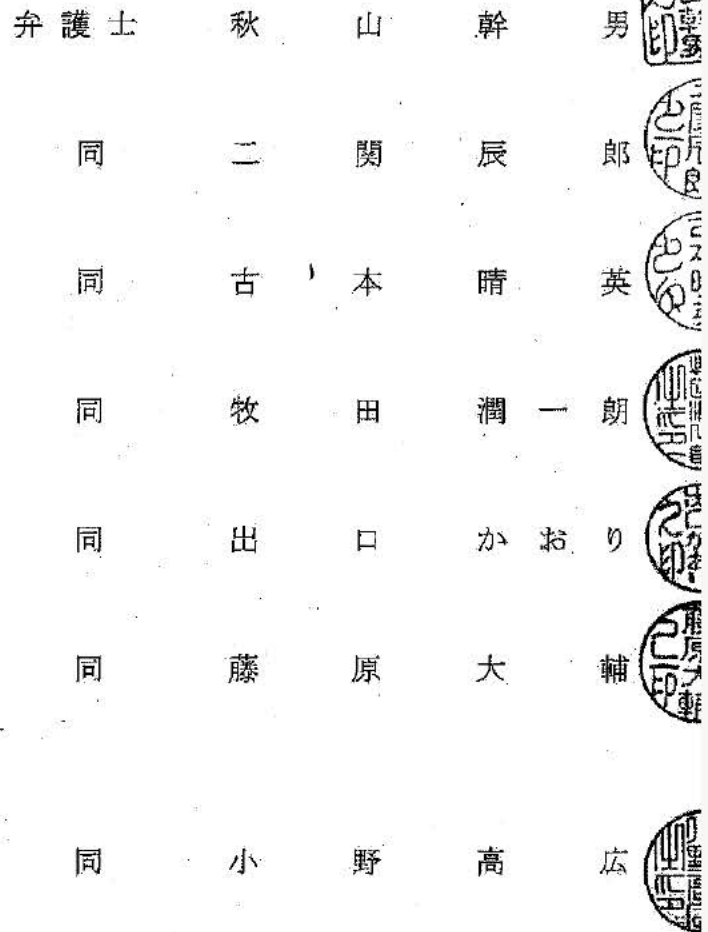 弁護士 秋山幹男
同 二関辰郎
同 古本晴英
同 牧田潤一朗
同 出口かおり
同 藤原大輔
同 小野高広